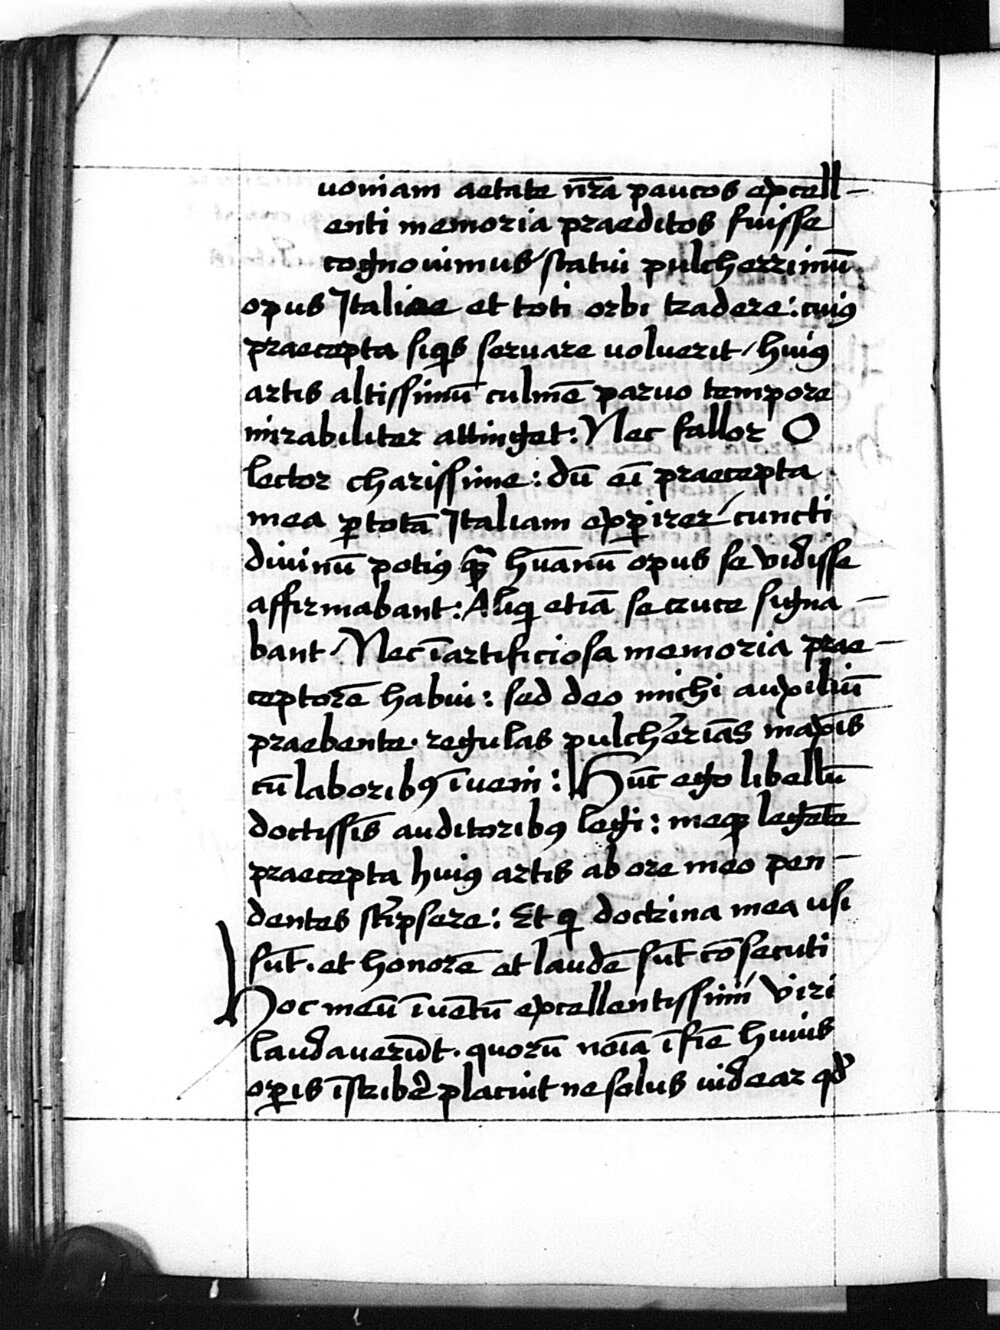 uoniam aetate nr̄a paucos excell-
enti memoria praeditos fuisse
cognouimus/statui pulcherrimū
opus Italiae et toti orbi tradere: cuiꝰ
praecepta siqis seruare uoluerit/huiꝰ
artis altissimū culmē paruo tempore
mirabiliter attinget: Nec fallor O
lector charissime: dū eī praecepta
mea ꝑ totā Italiam exꝑirer/cuncti
diuinū potiꝰ qꝫ hūanū opus se vidisse
affirmabant: Aliq etiā se cruce signa-
bant/Nec ī artificiosa memoria prae-
ceptorē habui: sed deo michi auxiliū
praebente. regulas pulcherīas maxīs
cū laboribꝰ īueni: Hūc ego libellū
doctissīs auditoribꝰ legi: meqꝫ legēte
praecepta huiꝰ artis ab ore meo pen-
dentes scripsere: Et q doctrina mea usi
sūt. et honorē et laudē sūt cōsecuti
Hoc meū īuētū excellentissimi viri
laudauerūt. quorū noīa ī fīe huius
oꝑis īscribe placuit ne solus uidear qd